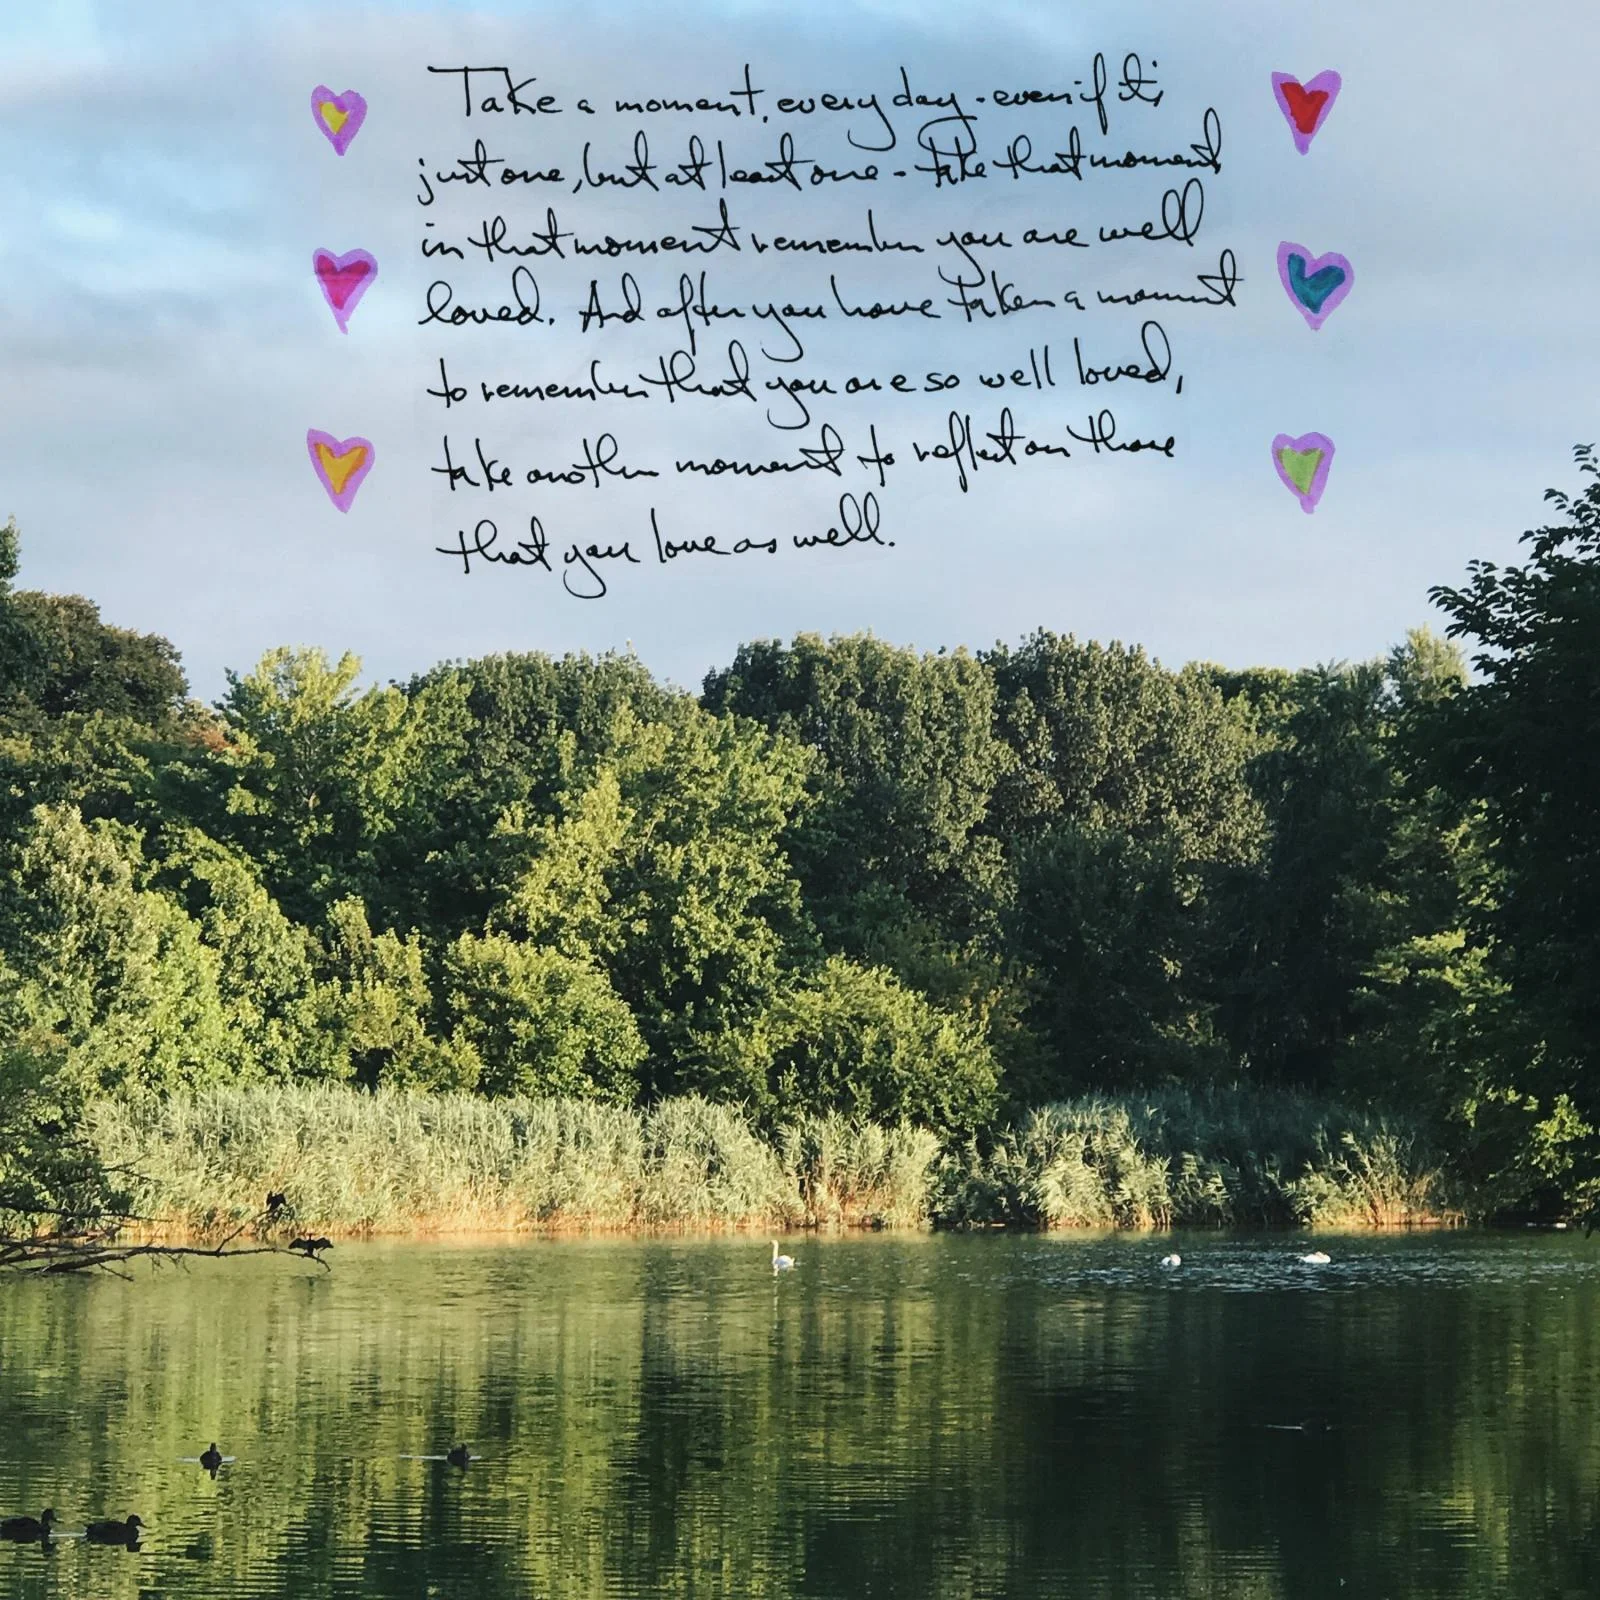 Take a moment, every day - even if it's
just one, but at least one - take that moment
in that moment remember you are well
loved. And after you have taken a moment
to remember that you are so well loved,
take another moment to reflect on those
that you love as well.